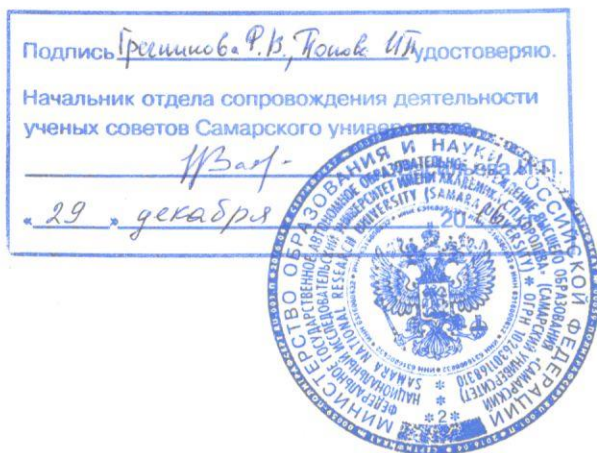 Подпись Гречникова Ф.В., Попова И.П. удостоверяю.
Начальник отдела сопровождения деятельности
ученых советов Самарского
И.П.
« 29 » декабря 2016
МИНИСТЕРСТВО ОБРАЗОВАНИЯ И НАУКИ РОССИЙСКОЙ ФЕДЕРАЦИИ
ФЕДЕРАЛЬНОЕ ГОСУДАРСТВЕННОЕ АВТОНОМНОЕ ОБРАЗОВАТЕЛЬНОЕ УЧРЕЖДЕНИЕ ВЫСШЕГО ОБРАЗОВАНИЯ «САМАРСКИЙ
НАЦИОНАЛЬНЫЙ ИССЛЕДОВАТЕЛЬСКИЙ УНИВЕРСИТЕТ ИМЕНИ АКАДЕМИКА С.П. КОРОЛЕВА» (САМАРСКИЙ УНИВЕРСИТЕТ)
SAMARA NATIONAL RESEARCH UNIVERSITY (SAMARA UNIVERSITY) * ОГРН 1026301168310
* 2 *